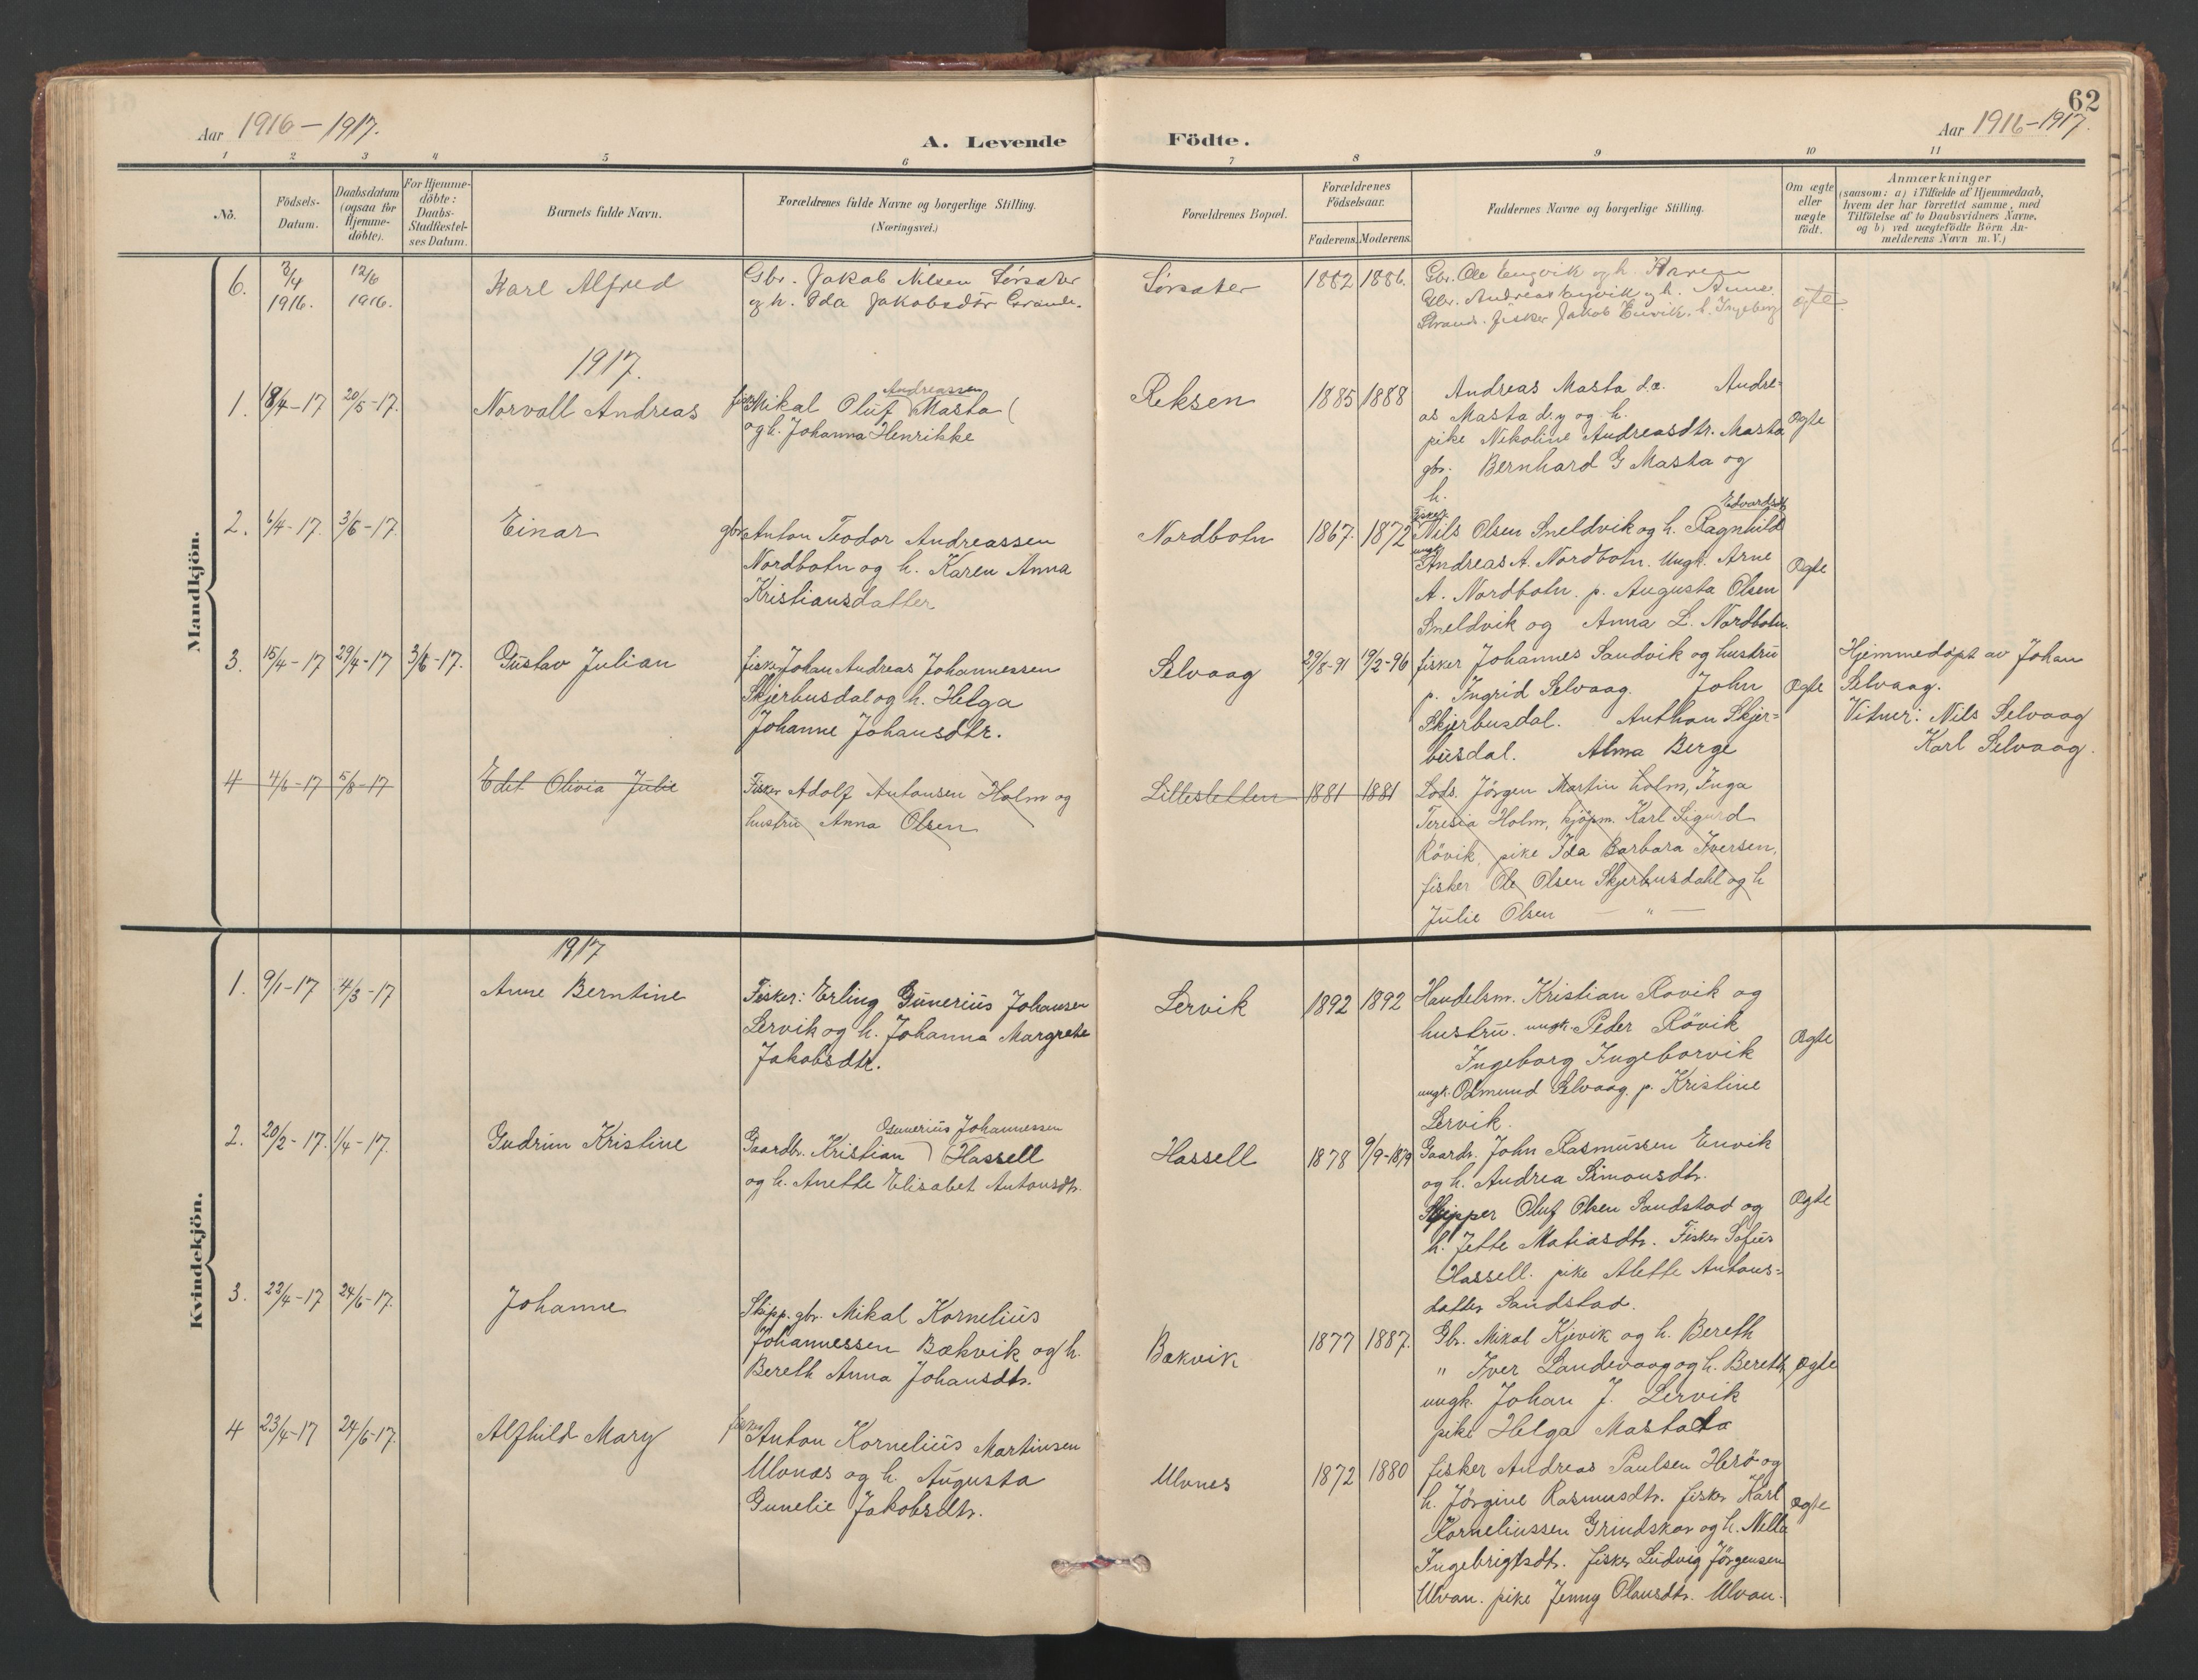 62
Aar 1916-1917.
A. Levende Födte.
Aar 1916-1917.
1 2 3 4 5 6 7 8 9 10 11
No.
Födsels-
Datum.
Daabsdatum
(ogsaa for
Hjemme-
döbte).
For Hjemme-
döbte:
Daabs-
Stadfæstel-
ses Datum.
Barnets fulde Navn.
Forældrenes fulde Navne og borgerlige Stilling.
(Næringsvei.)
Forældrenes Bopæl.
Forældrenes
Födselsaar.
Faderens. Moderens.
Faddernes Navne og borgerlige Stilling.
Om ægte
eller
uægte
födt.
Anmærkninger
(saasom: a) i Tilfælde af Hjemmedaab,
hvem der har forrettet samme, med
Tilföielse af to Daabsvidners Navne,
og b) ved uægtefödte Börn An-
melderens Navn m. V.)
Mandkjön.
6.
3/4
1916.
12/6
1916.
Karl Alfred
Gbr. Jakob Nilsen Sørsæter
og h. Ida Jakobsdtr
Sørsæter
1882 1886.
Gbr. Ole Engvik og h. Karen
Gbr. Andreas Engvik og h. Anne
Strand. fisker Jakob h. Ingeborg
ægte
1917.
1. 18/4-17 20/5-17.
Norvall Andreas
Andreassen
fisk. Mikal Oluf Masta
og h. Johanna Henrikke
Reksen
1885 1888
Andreas Masta d.æ. Andre-
as Masta d.y og h.
pike Nikoline Andreasdtr. Masta
gbr. Bernhard G Masta og
h.
Ægte
2. 6/4-17. 3/6-17.
Einar
gbr. Anton Teodor Andreassen
Nordbotn og h. Karen Anna
Kristiansdatter
Nordbotn
1867. 1872
Edvardsdt.
fisker Nils Olsen Sneldvik og h. Ragnhild
ungk. Andreas A. Nordbotn. Ungk. Arne
A. Nordbotn. p. Augusta Olsen
Sneldvik og Anna L. Nordbotn.
Ægte
3. 15/4-17 29/4-17 3/6-17.
Gustav Julian
fisker Johan Andreas Johannessen
Skjerbusdal og h. Helga
Johanne Johansdtr.
Selvaag
29/8-91 19/2-96
fisker Johannes Sandvik og hustru
p. Ingrid Selvaag. John
Skjerbusdal. Anthon Skjer-
busdal. Alma Berge
Ægte
Hjemmedøpt av Johan
Selvaag.
Vitner: Nils Selvaag
Karl Selvaag.
4 4/6-17 5/8-17
Edit Olivia Julie
Fisker Adolf Antonsen Holm og
hustru Anna Olsen
Lillesletten
1881 1881
Lods. Jörgen Martin Holm, Inga
Teresia Holm, kjöpm. Karl Sigurd
Rövik, pike Ida Barbara Iversen,
fisker Ole Olsen Skjerbusdahl og h
Julie Olsen — " —
Kvindekjön.
1917
1. 9/1-17 4/3-17
Anne Berntine
Fisker: Erling Gunerius Johansen
Lervik og h. Johanna Margrete
Jakobsdtr.
Lervik
1892 1892
Handelsm. Kristian Rovik og
hustru. ungk. Peder Rövik
Ingeborg Ingeborvik
ungk. Osmund Selvaag. p. Kristine
Lervik.
Ægte
2. 20/2-17. 1/4-17.
Gudrun Kristine
Gunerius Johannessen
Gaardbr. Kristian Hassell
og h. Anette Elisabet Antonsdtr.
Hassell
1878 9/9-1879
Gaardr. John Rasmussen Envik
og h. Andrea Simonsdtr.
Skipper Oluf Olsen Sandstad og
h. Jette Matiasdtr. Fisker Sofus
Hassell. pike Alette Antons-
datter Sandstad.
Ægte
3. 22/4-17 24/6-17.
Johanne
Skipp. gbr. Mikal Kornelius
Johannessen Bækvik og h.
Bereth Anna Johansdtr.
Bækvik
1877 1887.
Gbr. Mikal Kjevik og h. Bereth
" Iver Landevaag og h. Bereth
ungk. Johan J. Lervik
pike Helga Masta
Ægte
4 23/4-17 24/6-17.
Alfhild Mary
fisker Anton Kornelius Martinsen
Ulvnæs og h. Augusta
Gunelie Jakobsdtr.
Ulvnes
1872 1880
fisker Andreas Paulsen Herö og
h. Jørgine Rasmusdtr. fisker Karl
Korneliussen Grindskar og h. Nella
Ingebrigtsdtr. fisker Ludvig Jørgensen
Ulvan. pike Jenny Olausdtr. Ulvan.
Ægte